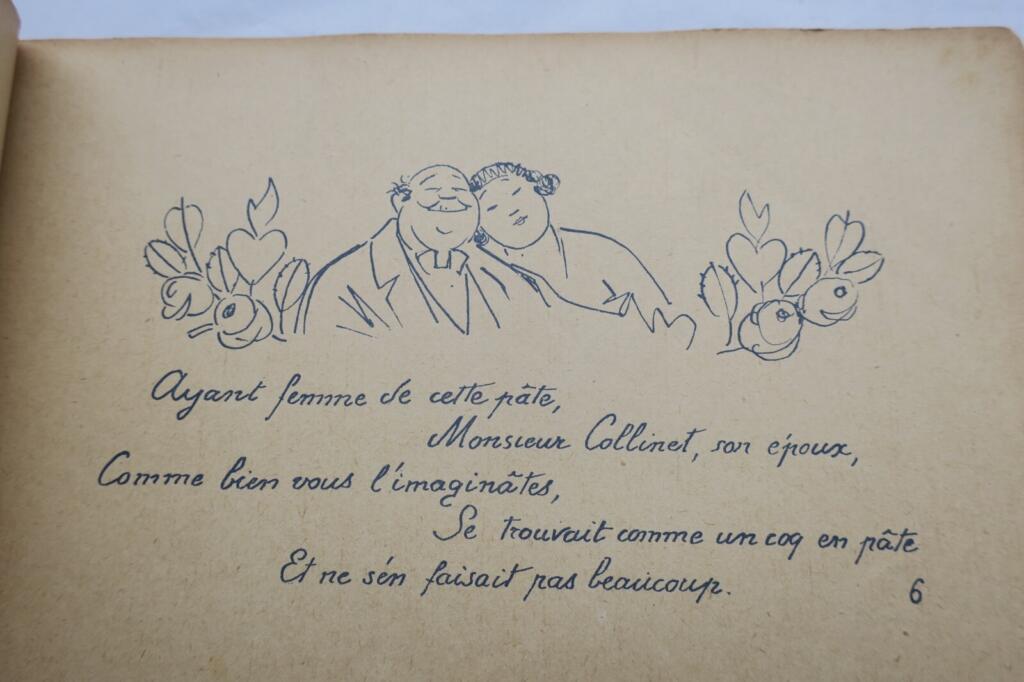 Ayant femme de cette pâte,
Monsieur Collinet, son époux,
Comme bien vous l'imaginâtes,
Se trouvait comme un coq en pâte
Et ne s'én faisait pas beaucoup.
6